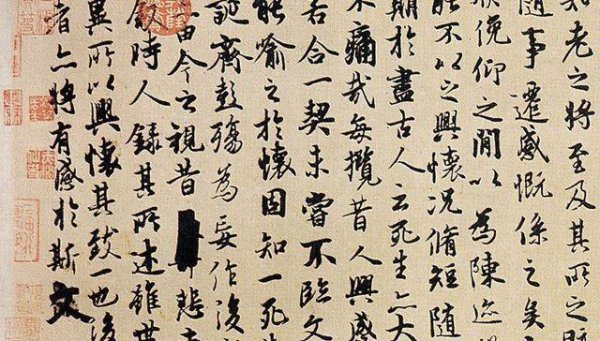 知老之將至及其所之既
隨事遷感慨係之矣
欣俛仰之閒以為陳迹
能不以之興懷况脩短隨
期於盡古人云死生亦大
不痛哉每攬昔人興感
若合一契未嘗不臨文
能喻之於懷固知一死
誕齊彭殤為妄作後
由今之視昔悲夫
敘時人錄其所述雖世
異所以興懷其致一也後
者亦將有感於斯文